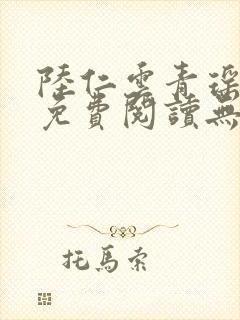 陸仁雲青瑶
免費閱讀無
托馬索